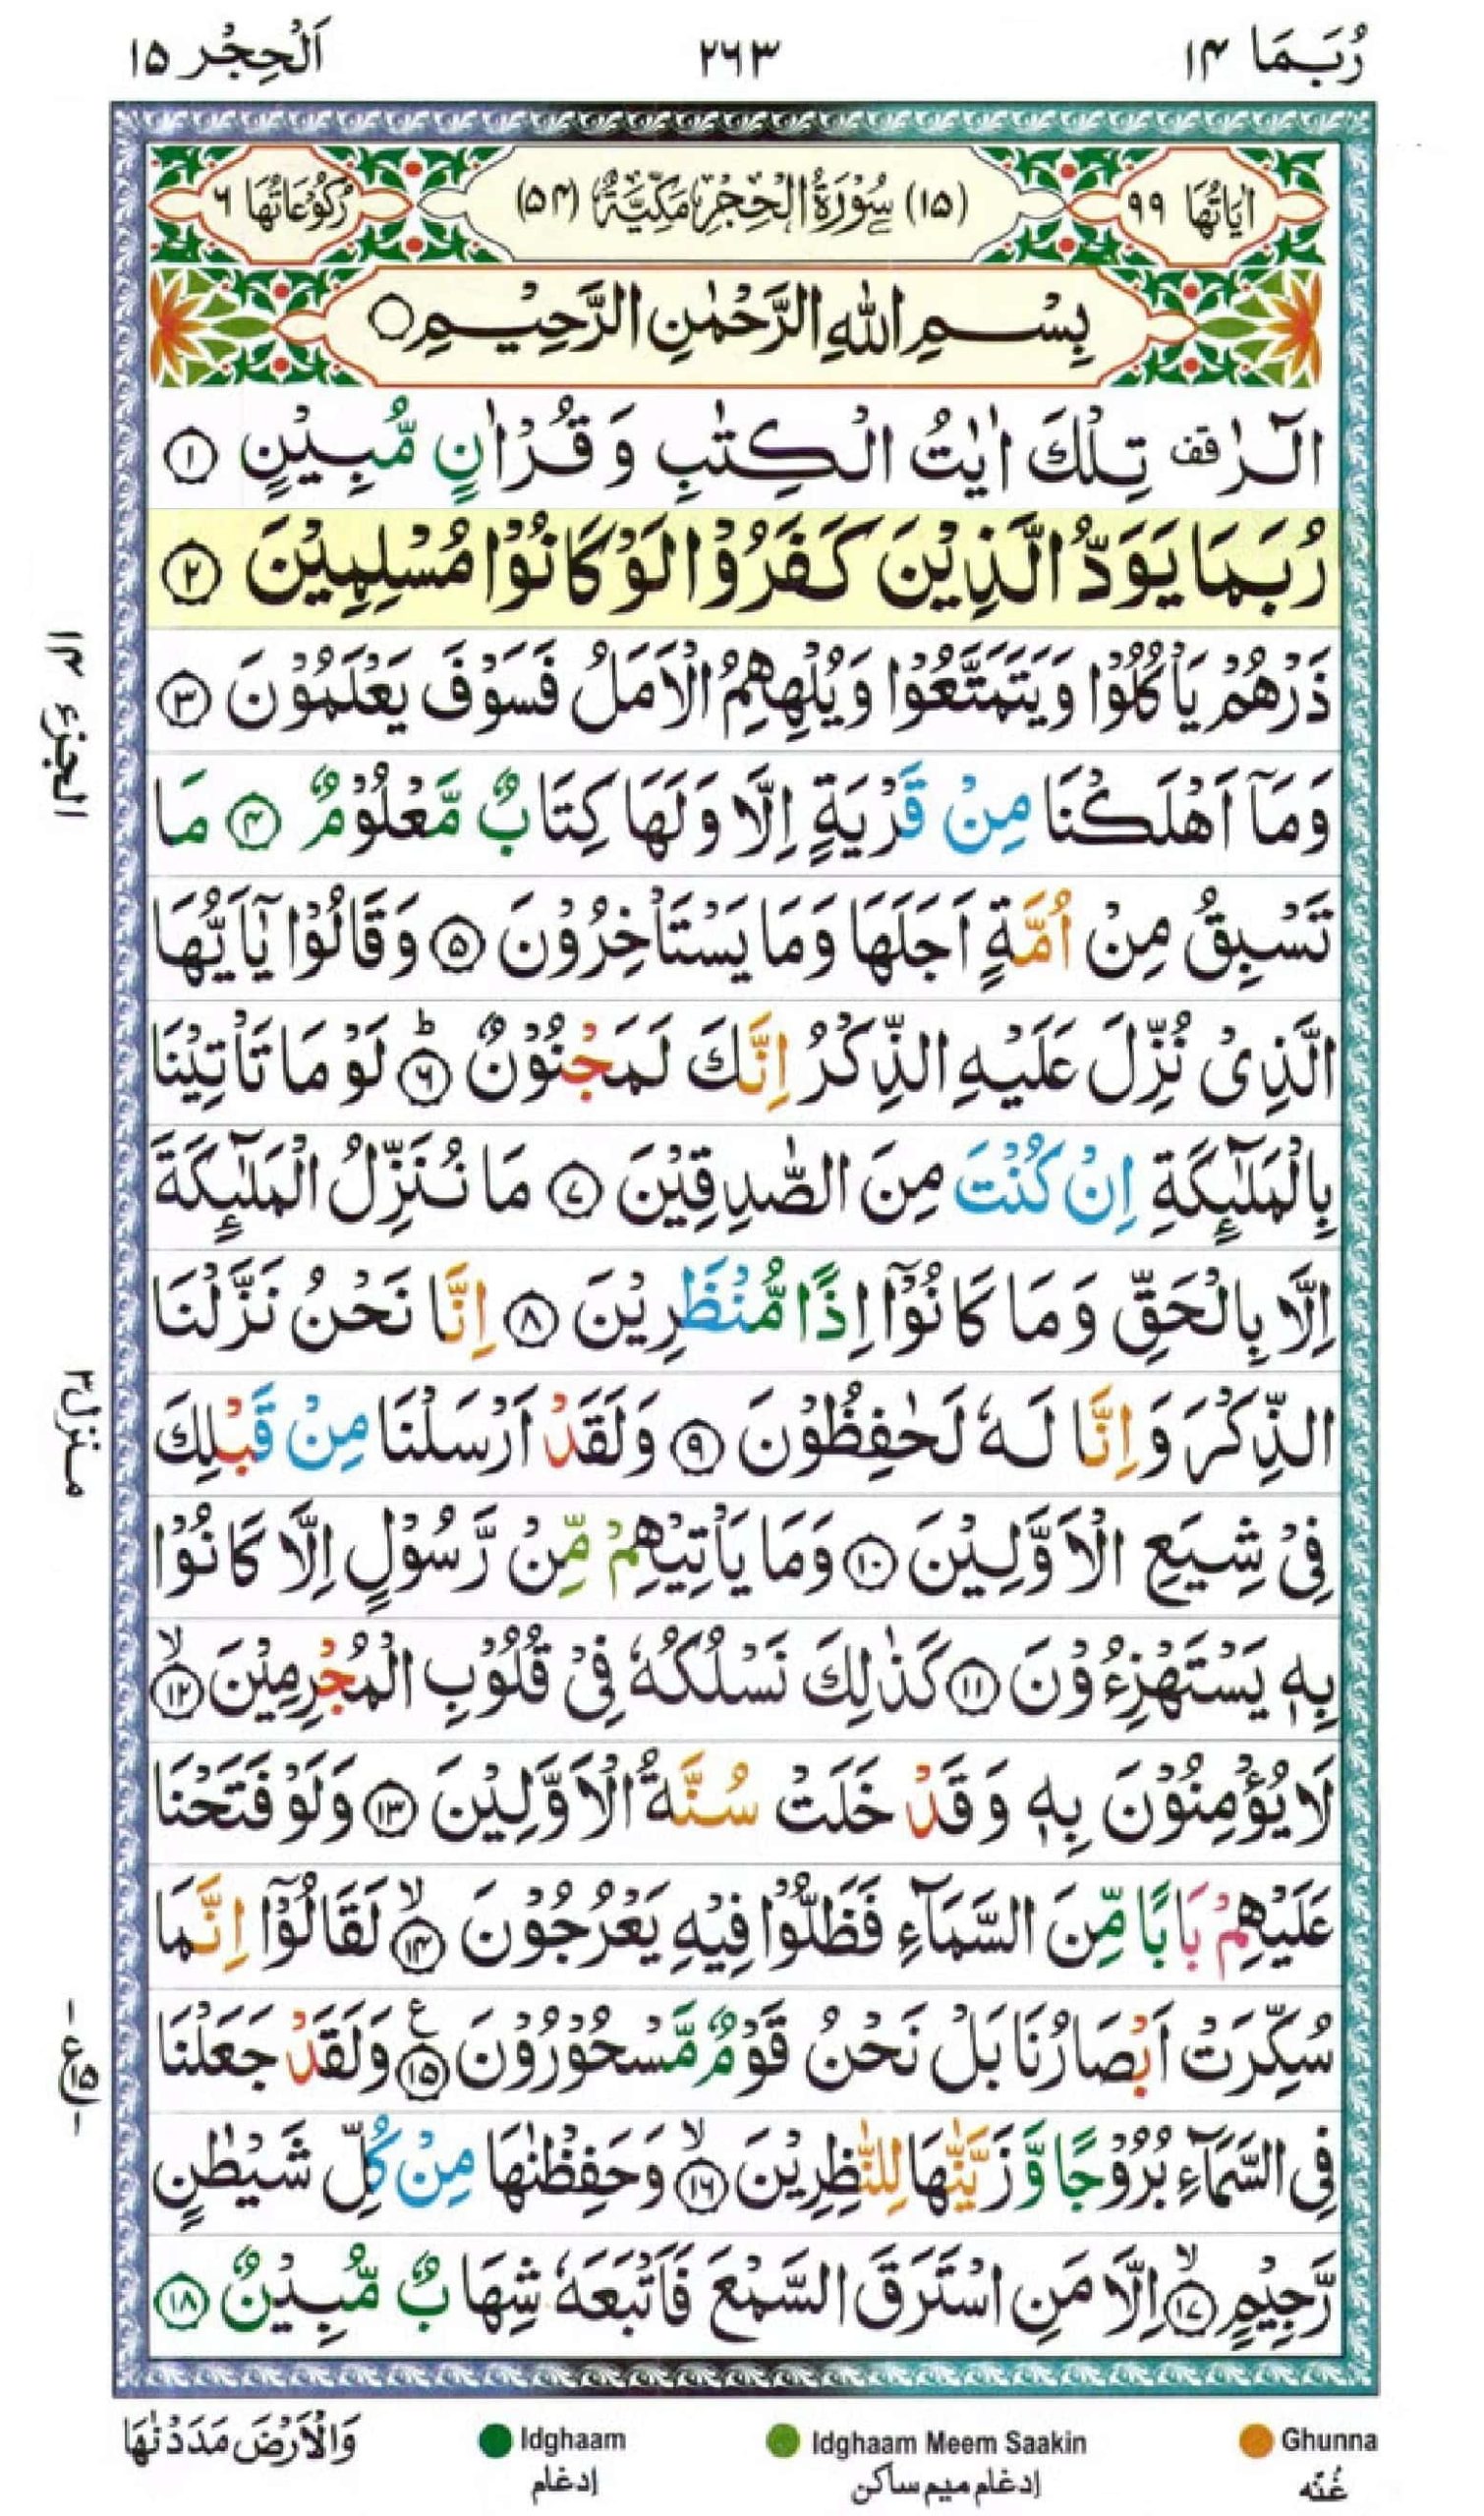 رُبَمَا ۱۴
۲۶۳
اَلْحِجْر ۱۵
اٰيَاتُهَا ۹۹
(۱۵) سُوْرَةُ الْحِجْرِ مَكِّيَّةٌ (۵۴)
رُكُوْعَاتُهَا ۶
بِسْمِ اللّٰهِ الرَّحْمٰنِ الرَّحِيْمِ
الٓرٰ قف تِلْكَ اٰيٰتُ الْكِتٰبِ وَ قُرْاٰنٍ مُّبِيْنٍ ۱
رُبَمَا يَوَدُّ الَّذِيْنَ كَفَرُوْا لَوْ كَانُوْا مُسْلِمِيْنَ ۲
ذَرْهُمْ يَاْكُلُوْا وَيَتَمَتَّعُوْا وَيُلْهِهِمُ الْاَمَلُ فَسَوْفَ يَعْلَمُوْنَ ۳
وَمَاۤ اَهْلَكْنَا مِنْ قَرْيَةٍ اِلَّا وَلَهَا كِتَابٌ مَّعْلُوْمٌ ۴ مَا
تَسْبِقُ مِنْ اُمَّةٍ اَجَلَهَا وَمَا يَسْتَاْخِرُوْنَ ۵ وَقَالُوْا يٰۤاَيُّهَا
الَّذِىْ نُزِّلَ عَلَيْهِ الذِّكْرُ اِنَّكَ لَمَجْنُوْنٌ ؕ ۶ لَوْ مَا تَاْتِيْنَا
بِالْمَلٰٓئِكَةِ اِنْ كُنْتَ مِنَ الصّٰدِقِيْنَ ۷ مَا نُنَزِّلُ الْمَلٰٓئِكَةَ
اِلَّا بِالْحَقِّ وَمَا كَانُوْۤا اِذًا مُّنْظَرِيْنَ ۸ اِنَّا نَحْنُ نَزَّلْنَا
الذِّكْرَ وَ اِنَّا لَهٗ لَحٰفِظُوْنَ ۹ وَلَقَدْ اَرْسَلْنَا مِنْ قَبْلِكَ
فِىْ شِيَعِ الْاَوَّلِيْنَ ۱۰ وَمَا يَاْتِيْهِمْ مِّنْ رَّسُوْلٍ اِلَّا كَانُوْا
بِهٖ يَسْتَهْزِءُوْنَ ۱۱ كَذٰلِكَ نَسْلُكُهٗ فِىْ قُلُوْبِ الْمُجْرِمِيْنَ ۙ ۱۲
لَا يُؤْمِنُوْنَ بِهٖ وَ قَدْ خَلَتْ سُنَّةُ الْاَوَّلِيْنَ ۱۳ وَلَوْ فَتَحْنَا
عَلَيْهِمْ بَابًا مِّنَ السَّمَآءِ فَظَلُّوْا فِيْهِ يَعْرُجُوْنَ ۙ ۱۴ لَقَالُوْۤا اِنَّمَا
سُكِّرَتْ اَبْصَارُنَا بَلْ نَحْنُ قَوْمٌ مَّسْحُوْرُوْنَ ع ۱۵ وَلَقَدْ جَعَلْنَا
فِى السَّمَآءِ بُرُوْجًا وَّ زَيَّنّٰهَا لِلنّٰظِرِيْنَ ۙ ۱۶ وَحَفِظْنٰهَا مِنْ كُلِّ شَيْطٰنٍ
رَّجِيْمٍ ۙ ۱۷ اِلَّا مَنِ اسْتَرَقَ السَّمْعَ فَاَتْبَعَهٗ شِهَابٌ مُّبِيْنٌ ۱۸
الجزء ۱۴
منزل ۳
وَالْاَرْضَ مَدَدْنٰهَا
Idghaam
ادغام
Idghaam Meem Saakin
ادغام ميم ساكن
Ghunna
غُنّه